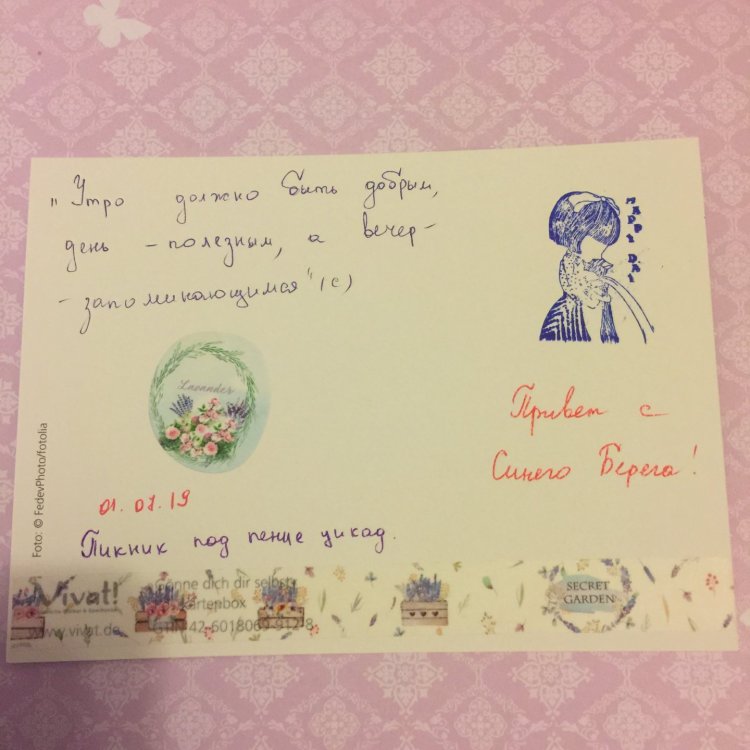 "Утро должно быть добрым,
день - полезным, а вечер -
- запоминающимся" (с)
HAPPY DAY
Lavander
Привет с
Синего Берега!
Foto: © FedevPhoto/fotolia
01.07.19
Пикник под пение цикад.
Vivat!
www.vivat.de
Gönne dich dir selbst
Kartenbox
42-6018069-912-8
SECRET
GARDEN